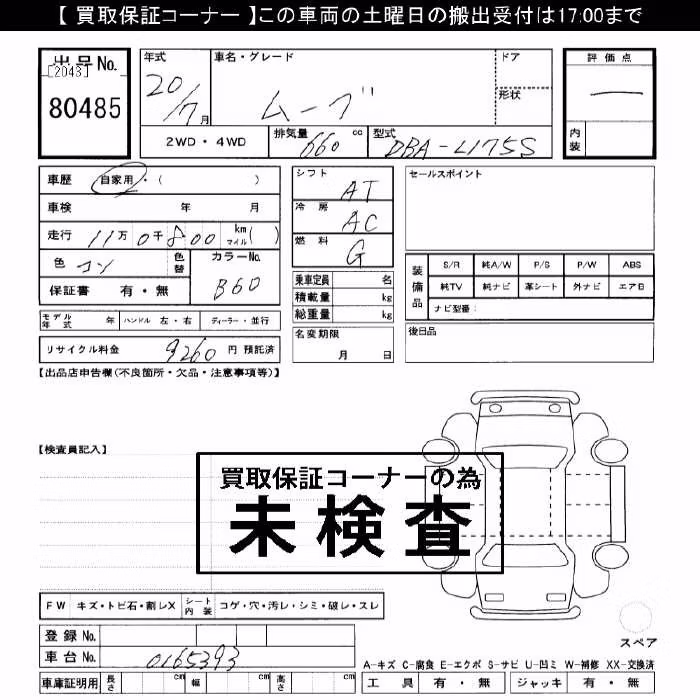 【 買取保証コーナー 】この車両の土曜日の搬出受付は17:00まで
出品No.
[2043]
80485
年式 20/7月
車名・グレード ムーブ
ドア
形状
評価点
内装
2WD・4WD
排気量 660 cc
型式 DBA-L175S
車歴 自家用・( )
車検 年 月
走行 11万0千800 km マイル( )
色 コン
色替
カラーNo. B60
保証書 有・無
シフト AT
冷房 AC
燃料 G
セールスポイント
乗車定員 名
積載量 kg
総重量 kg
装備品
S/R 純A/W P/S P/W ABS
純TV 純ナビ 革シート 外ナビ エアB
ナビ型番:
モデル年式 年 ハンドル 左・右 ディーラー・並行
名変期限
月 日
後日品
リサイクル料金 9260 円 預託済
【出品店申告欄(不良箇所・欠品・注意事項等)】
【検査員記入】
買取保証コーナーの為
未検査
FW キズ・トビ石・割レX
シート内装 コゲ・穴・汚レ・シミ・破レ・スレ
登録 No.
車台 No. 0165393
車庫証明用 長さ cm 幅 cm 高さ cm
スペア
A-キズ C-腐食 E-エクボ S-サビ U-凹ミ W-補修 XX-交換済
工具 有・無 ジャッキ 有・無